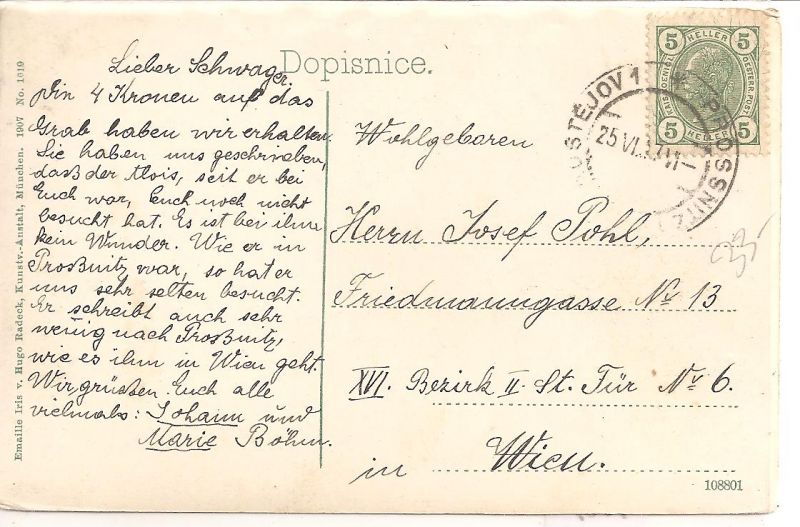 Dopisnice.
Lieber Schwager.
Die 4 Kronen auf das
Grab haben wir erhalten.
Sie haben uns geschrieben,
daß der Alois, seit er bei
Euch war, Euch noch nicht
besucht hat. Es ist bei ihm
kein Wunder. Wie er in
Proßnitz war, so hat er
uns sehr selten besucht.
Er schreibt auch sehr
wenig nach Proßnitz,
wie es ihm in Wien geht.
Wir grüßen Euch alle
vielmals: Johann und
Marie Böhm.
Wohlgeboren
Herrn Josef Pohl,
Friedmanngasse Nr 13
XVI. Bezirk II. St. Tür Nr 6.
in Wien.
5 HELLER 5
5 5
PROSSNITZ
25 VI
108801
Emaille Iris v. Hugo Radeck, Kunstv.-Anstalt, München. 1907 No. 1619